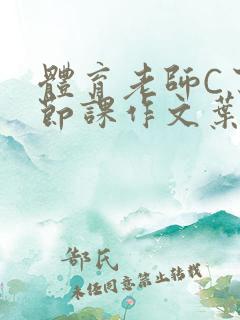 體育老師C了
節課作文葉
郜氏
未經同意禁止轉載